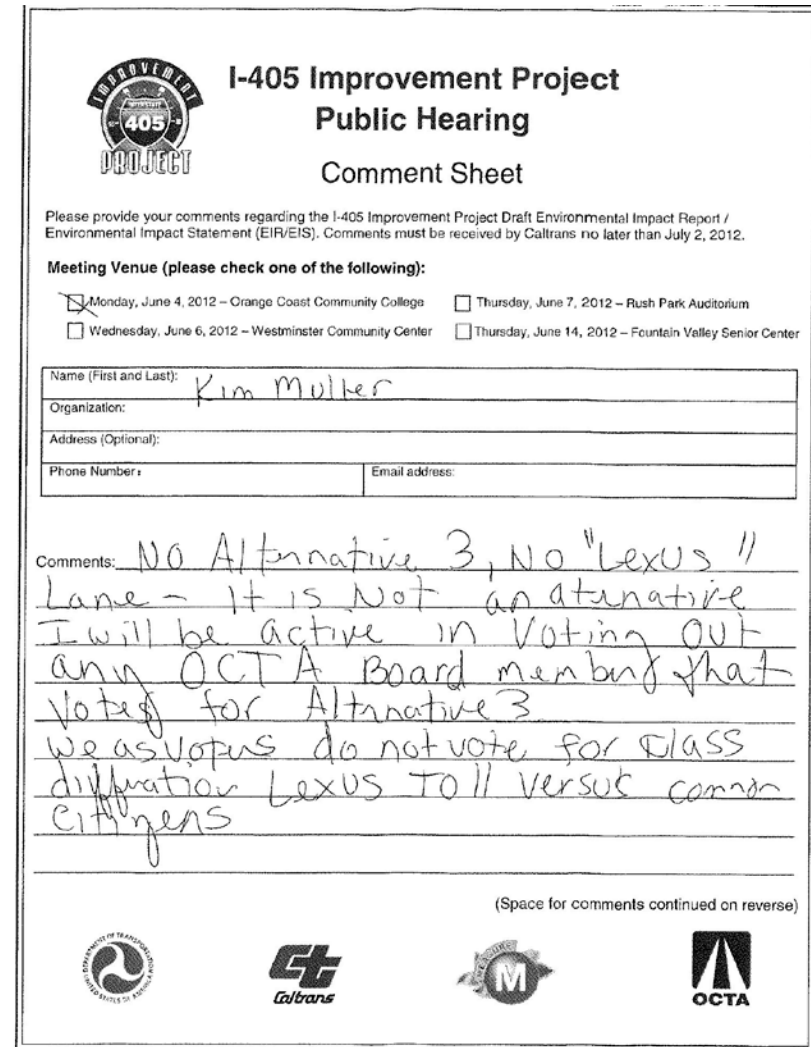 IMPROVEMENT
INTERSTATE
405
PROJECT
I-405 Improvement Project
Public Hearing
Comment Sheet
Please provide your comments regarding the I-405 Improvement Project Draft Environmental Impact Report /
Environmental Impact Statement (EIR/EIS). Comments must be received by Caltrans no later than July 2, 2012.
Meeting Venue (please check one of the following):
Monday, June 4, 2012 – Orange Coast Community College
Thursday, June 7, 2012 – Rush Park Auditorium
Wednesday, June 6, 2012 – Westminster Community Center
Thursday, June 14, 2012 – Fountain Valley Senior Center
Name (First and Last): Kim Muller
Organization:
Address (Optional):
Phone Number:
Email address:
Comments: NO Alternative 3, No "Lexus"
Lane - It is Not an aternative
I will be active in Voting OUT
any OCTA Board member that
votes for Alternative 3
We as voters do not vote for Class
Lexus Toll versus common
Citizens
(Space for comments continued on reverse)
DEPARTMENT OF TRANSPORTATION
UNITED STATES OF AMERICA
Caltrans
MEASURE
M
OCTA